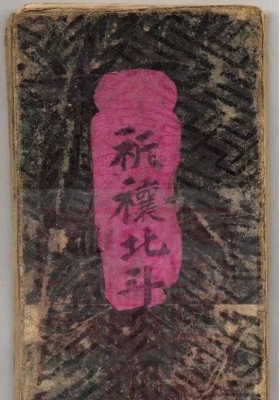 祈禳北斗